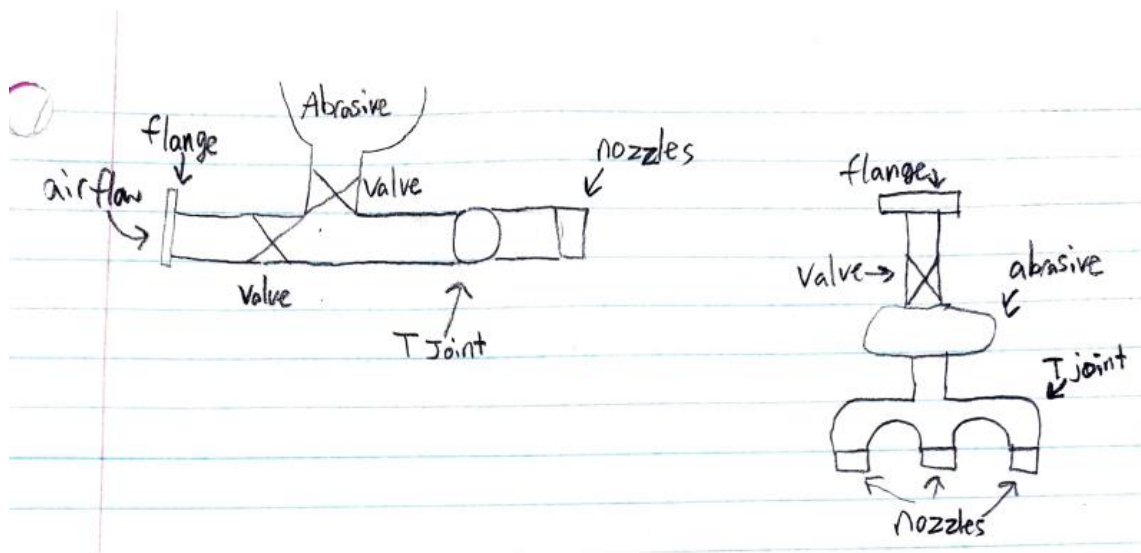 Abrasive
flange
airflow
Valve
nozzles
Valve
T Joint
flange
Valve
abrasive
T joint
nozzles